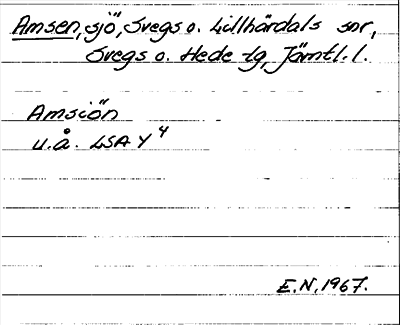 Amsen, sjö, Svegs o. Lillhärdals snr,
Svegs o. Hede tg, Jämtl. l.
Amsiön
u.å. LSA Y 4
E.N. 1967.